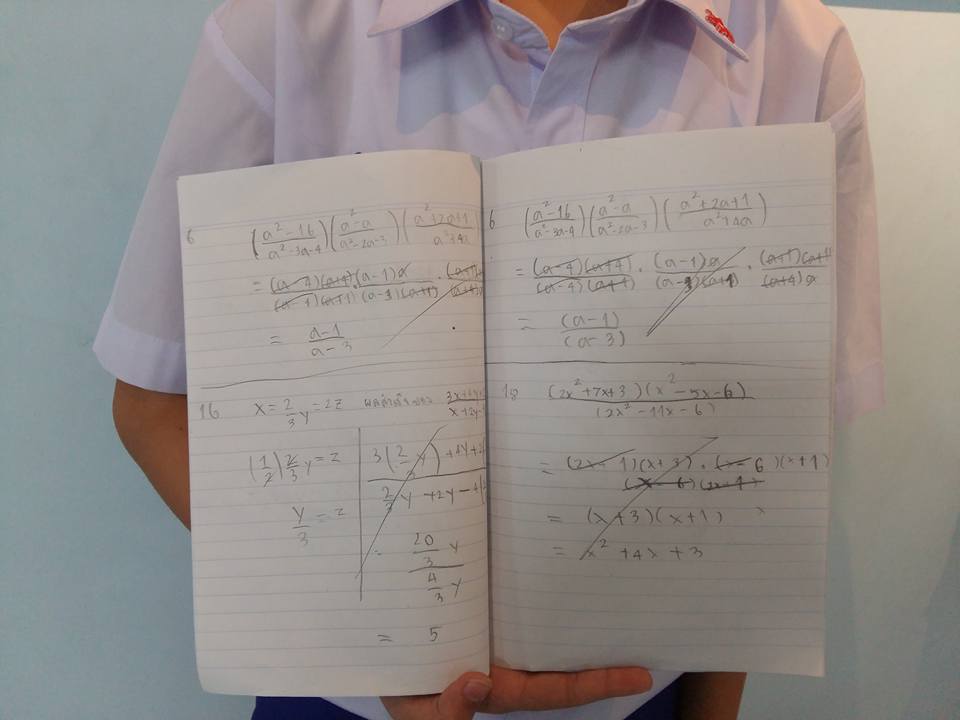 6 (a²-16 / a²-3a-4) (a²-a / a²-2a-3) (a²+2a+1 / a²+4a
= (a-4)(a+4) (a-1)a / (a-4)(a+1) (a-3)(a+1)
= a-1 / a-3
16 x = 2/3 y = 2z ผลสำเร็จของ 3x+4y / x+2y
(1/2) 2/3 y = z
y/3 = z
3(2/3 y) + 4y + 2 / 2/3 y + 2y - 4
20/3 y / 4/3 y
= 5
6 (a²-16 / a²-3a-4) (a²-a / a²-2a-3) (a²+2a+1 / a²+4a)
= (a-4)(a+4) / (a-4)(a+1) · (a-1)a / (a-3)(a+1) · (a+1)(a+1 / (a+4)a
= (a-1) / (a-3)
18 (2x²+7x+3)(x²-5x-6) / (2x²-11x-6)
= (2x-1)(x+3) · (x-6)(x+1) / (x-6)(2x-1)
= (x+3)(x+1)
= x²+4x+3